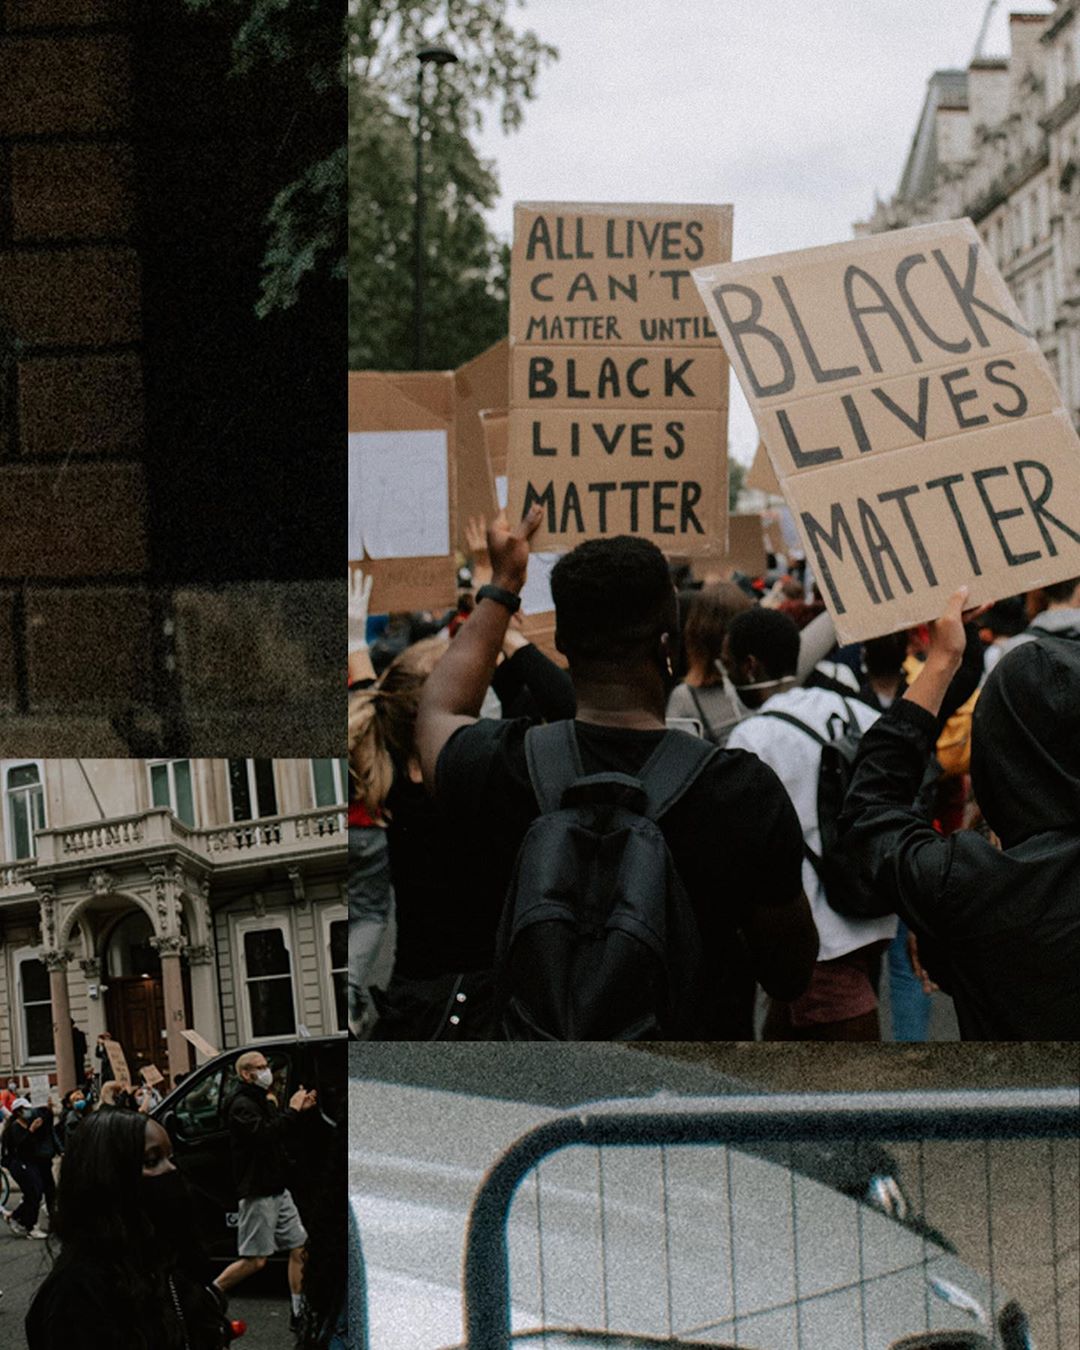 ALL LIVES
CAN'T
MATTER UNTIL
BLACK
LIVES
MATTER
BLACK
LIVES
MATTER
15